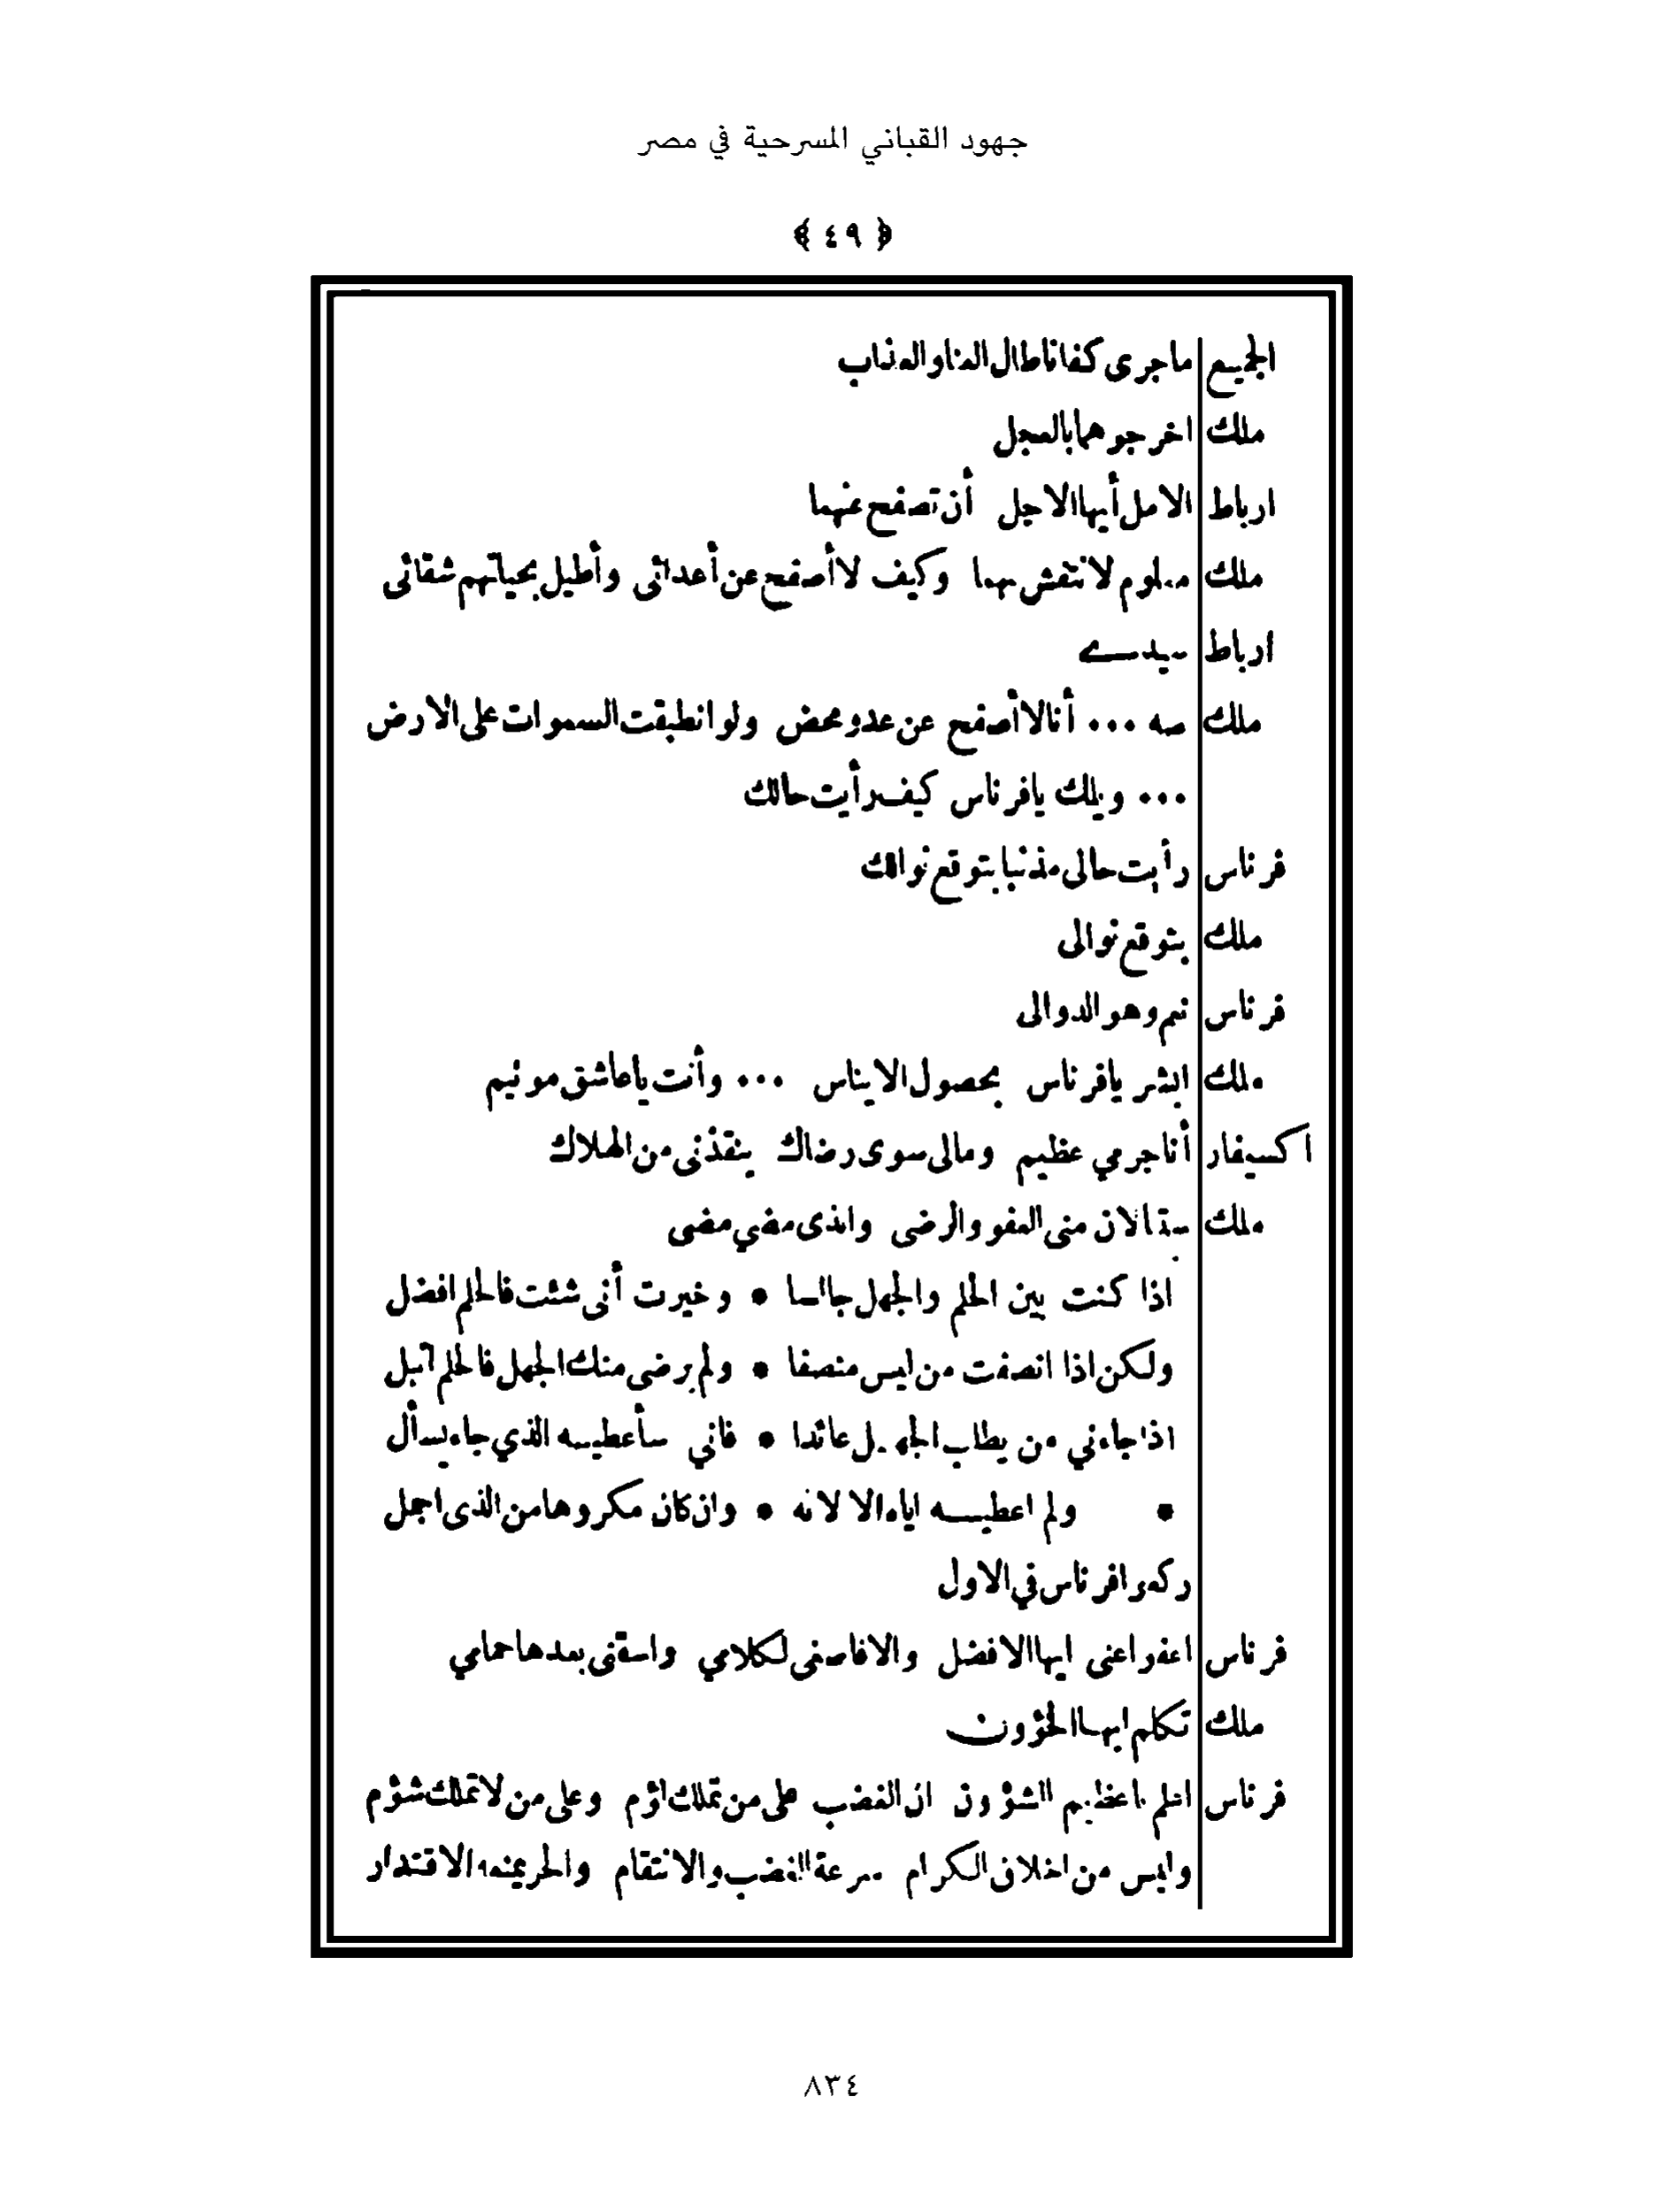 جهود القباني المسرحية في مصر
﴿ ٤٩ ﴾
الجميع ماجرى كفانا طال العنا والعذاب
ملك اخرجوهما بالعجل
ارباط الامل أيها الاجل أن تصفح عنهما
ملك معلوم لا تتغش بهما وكيف لا أصفح عن أعدائى وأطيل بحياتهم شقائى
ارباط سيدى
ملك صه ... أنا لا أصفح عن عدو محض ولو انطبقت السموات على الارض
... ويلك يافرناس كيف رأيت حالك
فرناس رأيت حالى مذنبا يتوقع نوالك
ملك يتوقع نوالى
فرناس نعم وهو الدوالى
ملك ابشر يافرناس بحصول الايناس ... وأنت ياعاشق مونيم
اكسيفار أنا جرمي عظيم ومالى سوى رضاك ينقذنى من الهلاك
ملك الان منى العفو والرضى والذى مضي مضى
اذا كنت بين الحلم والجهل جالسا • وخيرت أنى شئت فالحلم افضل
ولكن اذا انصفت من ليس منصفا • ولم يرضى منك الجهل فالحلم
اذا جاءني من يطلب الجهل عائدا • فاني سأعطيه الذي جاء يسأل
• ولم اعطيه اياه الا لانه • وان كان مكروها من الذى اجمل
ركعوا فرناس في الاول
فرناس اعفوا عنى ايها الافضل والا فاصغى لكلامي واسقنى بعدها حمامي
ملك تكلم ايها الخؤون
فرناس اعلم ياعظيم الشؤون ان الغضب على من تملك لؤم وعلى من لا تملك شؤم
وليس من اخلاق الكرام سرعة الغضب والانتقام والحر يمنعه الاقتدار
٨٣٤